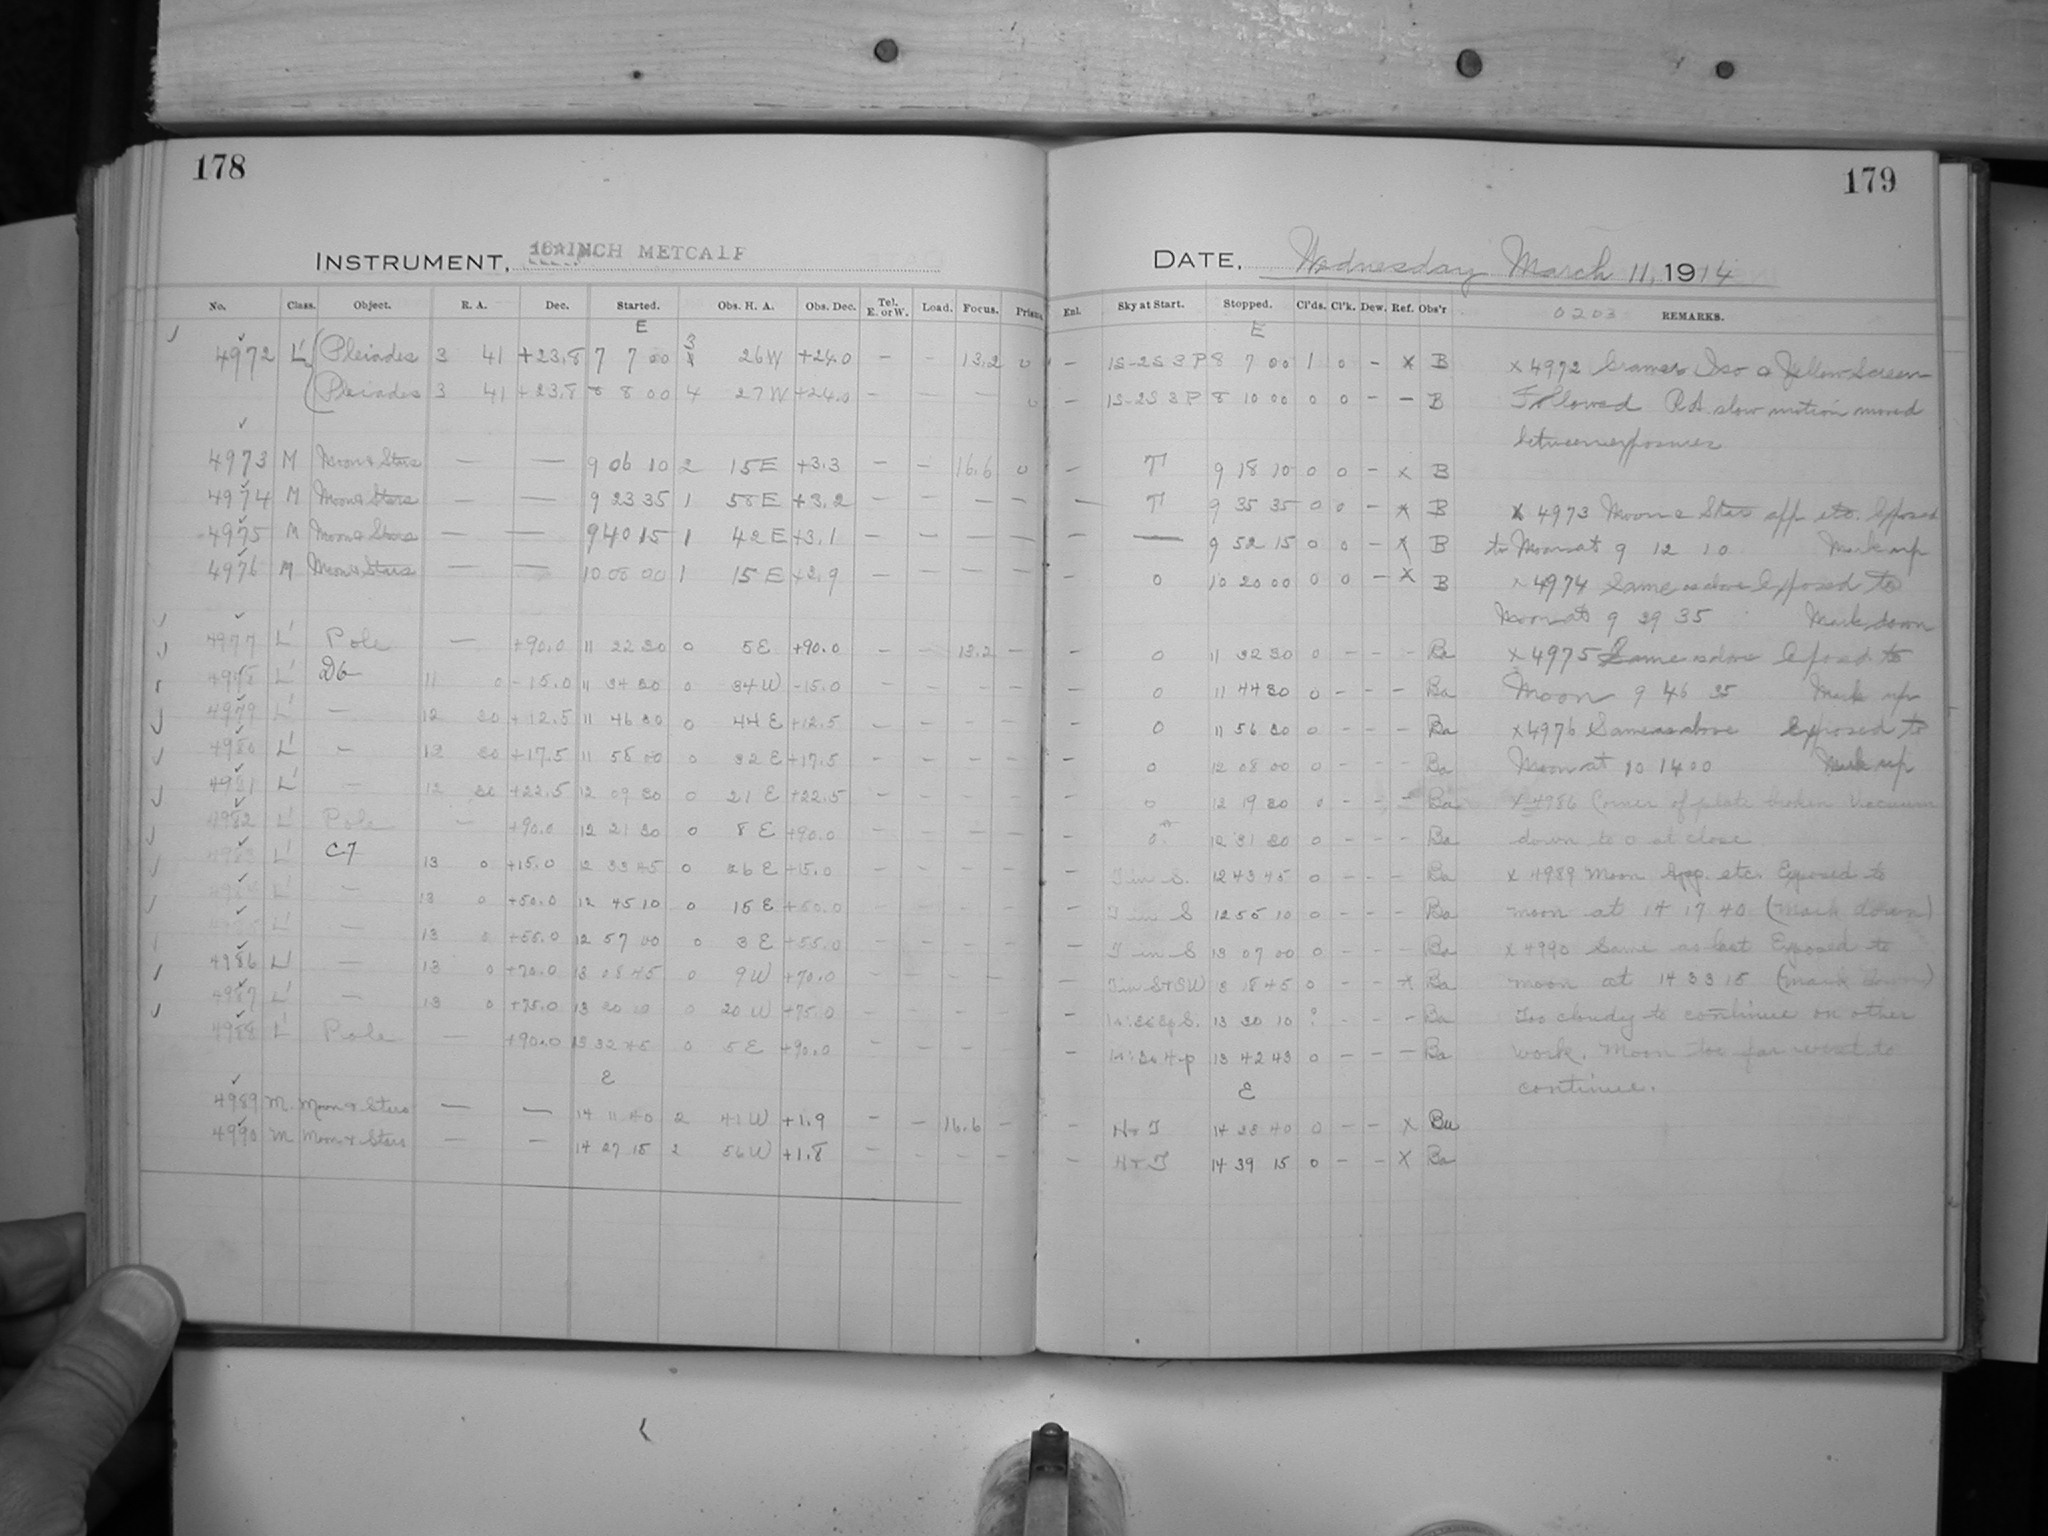 178
INSTRUMENT, 16 INCH METCALF
No. Class. Object. R. A. Dec. Started. Obs. H. A. Obs. Dec. Tel. E. or W. Load. Focus. Prism.
E
4972 L' Pleiades 3 41 +23.8 7 7 00 3 26 W +24.0 — — 13.2 0
Pleiades 3 41 +23.8 8 8 00 4 27 W +24.0 — — — 0
4973 M Moon & Stars — — 9 06 10 2 15 E +3.3 — — 16.6 0
4974 M Moon & Stars — — 9 23 35 1 58 E +3.2 — — — —
4975 M Moon & Stars — — 9 40 15 1 42 E +3.1 — — — —
4976 M Moon & Stars — — 10 08 00 1 15 E +2.9 — — — —
4977 L' Pole — +90.0 11 22 30 0 5 E +90.0 — — 13.2 —
4978 L' D6 11 0 -15.0 11 34 30 0 34 W -15.0 — — — —
4979 L' — 12 30 +12.5 11 46 30 0 44 E +12.5 — — — —
4980 L' — 12 30 +17.5 11 58 00 0 32 E +17.5 — — — —
4981 L' — 12 30 +22.5 12 09 30 0 21 E +22.5 — — — —
4982 L' Pole — +90.0 12 21 30 0 8 E +90.0 — — — —
4983 L' C7 13 0 +15.0 12 33 45 0 26 E +15.0 — — — —
4984 L' — 13 0 +50.0 12 45 10 0 15 E +50.0 — — — —
4985 L' — 13 0 +55.0 12 57 00 0 3 E +55.0 — — — —
4986 L' — 13 0 +70.0 13 08 45 0 9 W +70.0 — — — —
4987 L' — 13 0 +75.0 13 20 10 0 20 W +75.0 — — — —
4988 L' Pole — +90.0 13 32 45 0 5 E +90.0 — — — —
E
4989 M. Moon & Stars — — 14 11 40 2 41 W +1.9 — — 16.6 —
4990 M Moon & Stars — — 14 27 15 2 56 W +1.8 — — — —
179
DATE, Wednesday March 11, 1914
Enl. Sky at Start. Stopped. Cl'ds. Cl'k. Dew. Ref. Obs'r 0203 REMARKS.
E
— 1S-2S 3 P 8 7 00 1 0 — x B
— 1S-2S 3 P 8 10 00 0 0 — — B
— T 9 18 10 0 0 — x B
— T 9 35 35 0 0 — x B
— — 9 52 15 0 0 — x B
— 0 10 20 00 0 0 — x B
— 0 11 32 30 0 — — — Ba
— 0 11 44 30 0 — — — Ba
— 0 11 56 30 0 — — — Ba
— 0 12 08 00 0 — — — Ba
— 0 12 19 30 0 — — — Ba
— 0 12 31 30 0 — — — Ba
— T in S. 12 43 45 0 — — — Ba
— T in S 12 55 10 0 — — — Ba
— T in S 13 07 00 0 — — — Ba
— T in S & SW 13 18 45 0 — — x Ba
— 13 30 10 ? — — — Ba
— 13 42 43 0 — — — Ba
E
— H & T 14 23 40 0 — — x Ba
— H & T 14 39 15 0 — — x Ba
x 4972 Cramer Iso & Yellow Screen
Followed R A slow motion moved
between exposures
x 4973 Moon & Stars app etc. Exposed
to Moon at 9 12 10 Mark up
x 4974 Same as above Exposed to
Moon at 9 29 35 Mark down
x 4975 Same as above Exposed to
Moon 9 46 35 Mark up
x 4976 Same as above Exposed to
Moon at 10 14 00 Mark up
x 4986 Corner of plate broken Vacuum
down to 0 at close
x 4989 Moon App. etc. Exposed to
moon at 14 17 40 (Mark down)
x 4990 Same as last Exposed to
moon at 14 33 15 (Mark down)
Too cloudy to continue on other
work. Moon too far west to
continue.